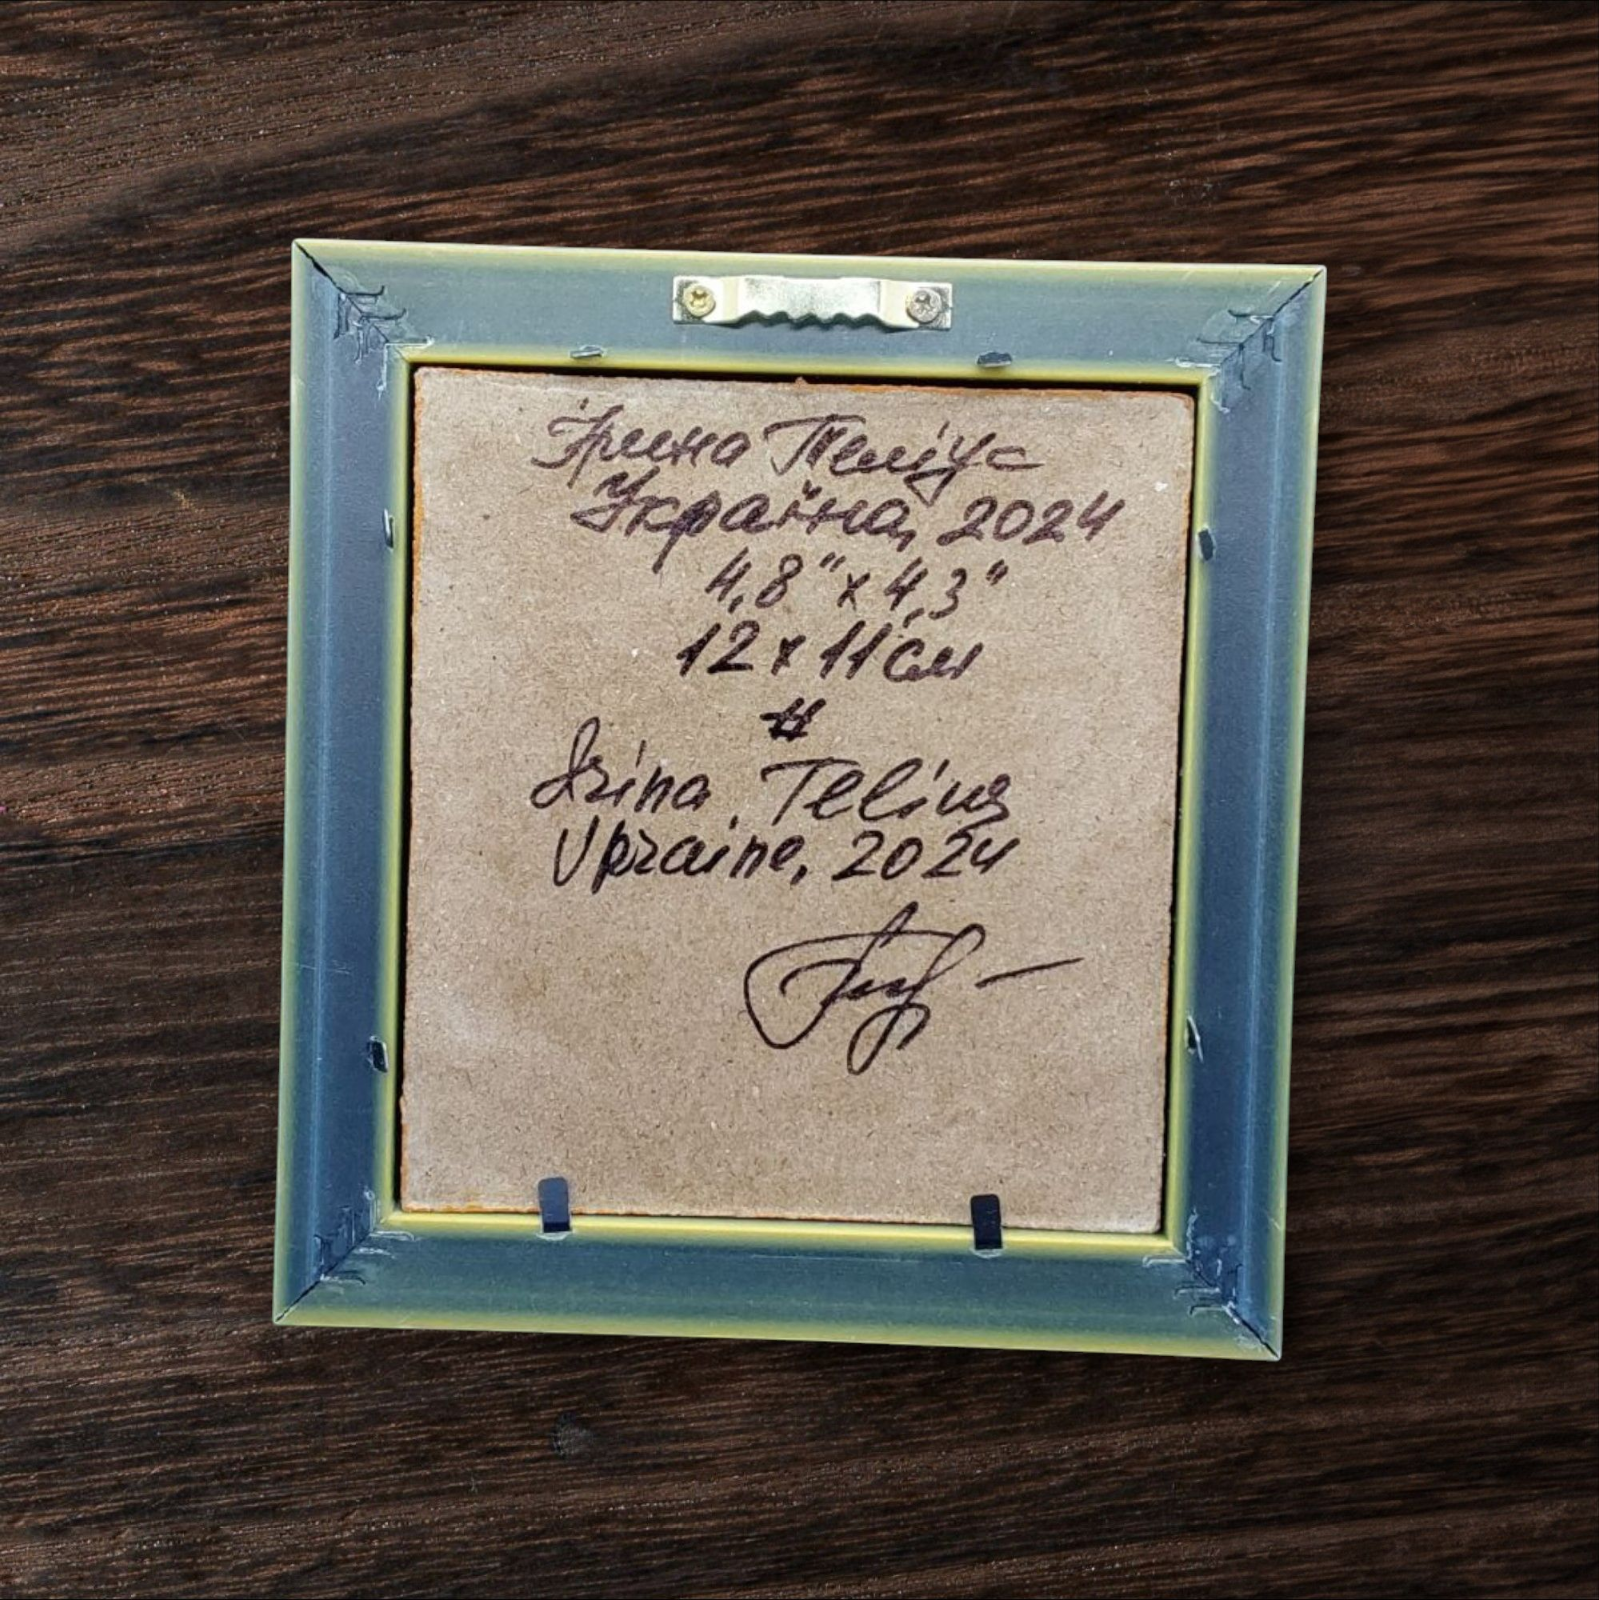 Ірина Теліус
Україна, 2024
4,8" x 4,3"
12 x 11 см
#
Irina Telius
Ukraine, 2024